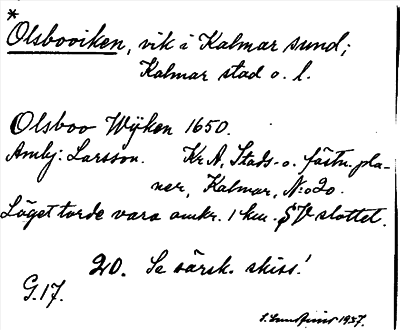 *
Olsboviken, vik i Kalmar sund;
Kalmar stad o. l.
Olsboo Wijken 1650.
Ambj: Larsson. Kr A, Stads- o. fästn. pla-
ner, Kalmar, N:o 20.
Läget torde vara omkr. 1 km. SV slottet.
20. Se särsk. skiss!
G.17.
1937.